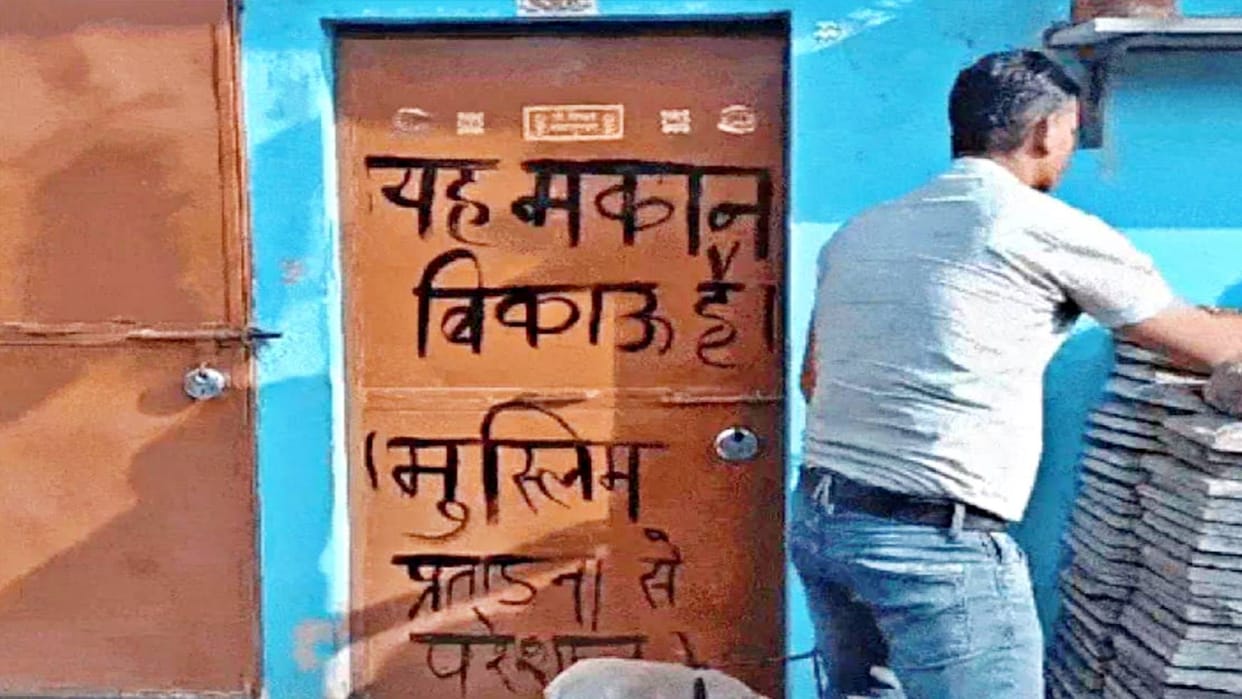 यह मकान
बिकाऊ है।
(मुस्लिम
प्रताडना से
परेशान